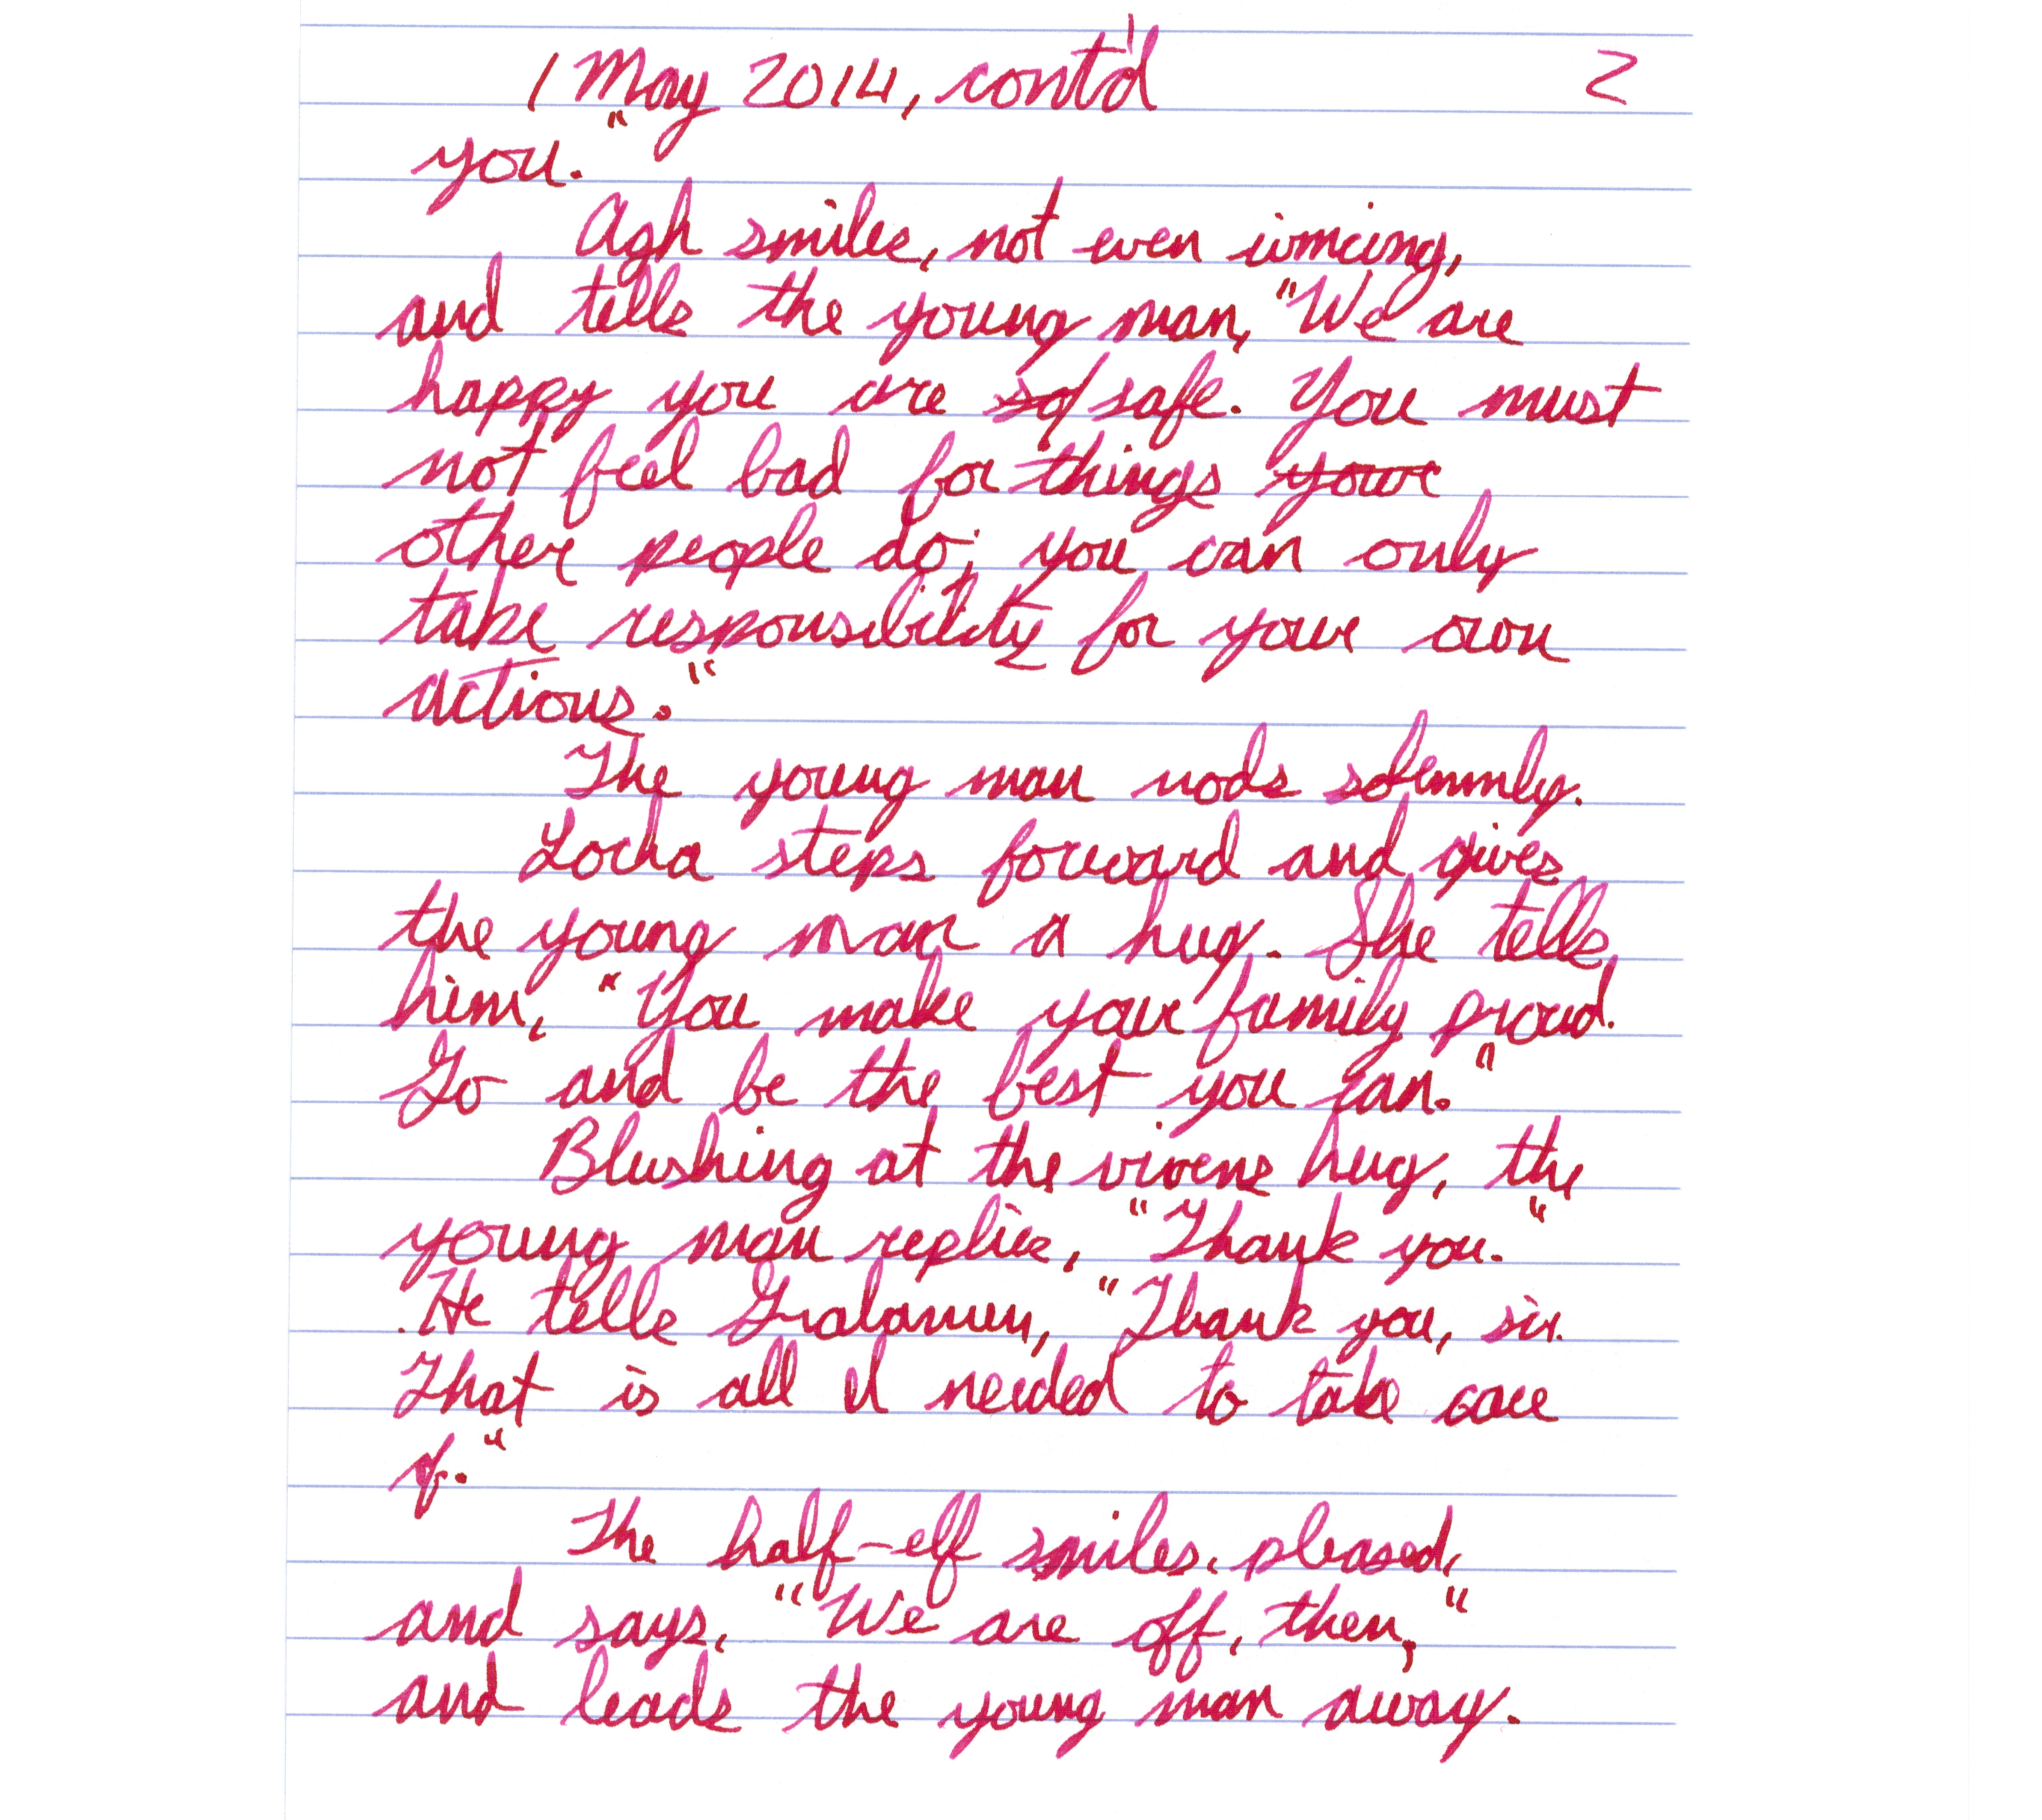 1 May 2014, cont'd 2
you."
Agh smiles, not even wincing,
and tells the young man, "We are
happy you are so safe. You must
not feel bad for things your
other people do; you can only
take responsibility for your own
actions."
The young man nods solemnly.
Locha steps forward and gives
the young man a hug. She tells
him, "You make your family proud.
Go and be the best you can."
Blushing at the vixens hug, the
young man replies, "Thank you."
He tells Gralamin, "Thank you, sir.
That is all I needed to take care
of."
The half-elf smiles, pleased,
and says, "We are off, then,"
and leads the young man away.